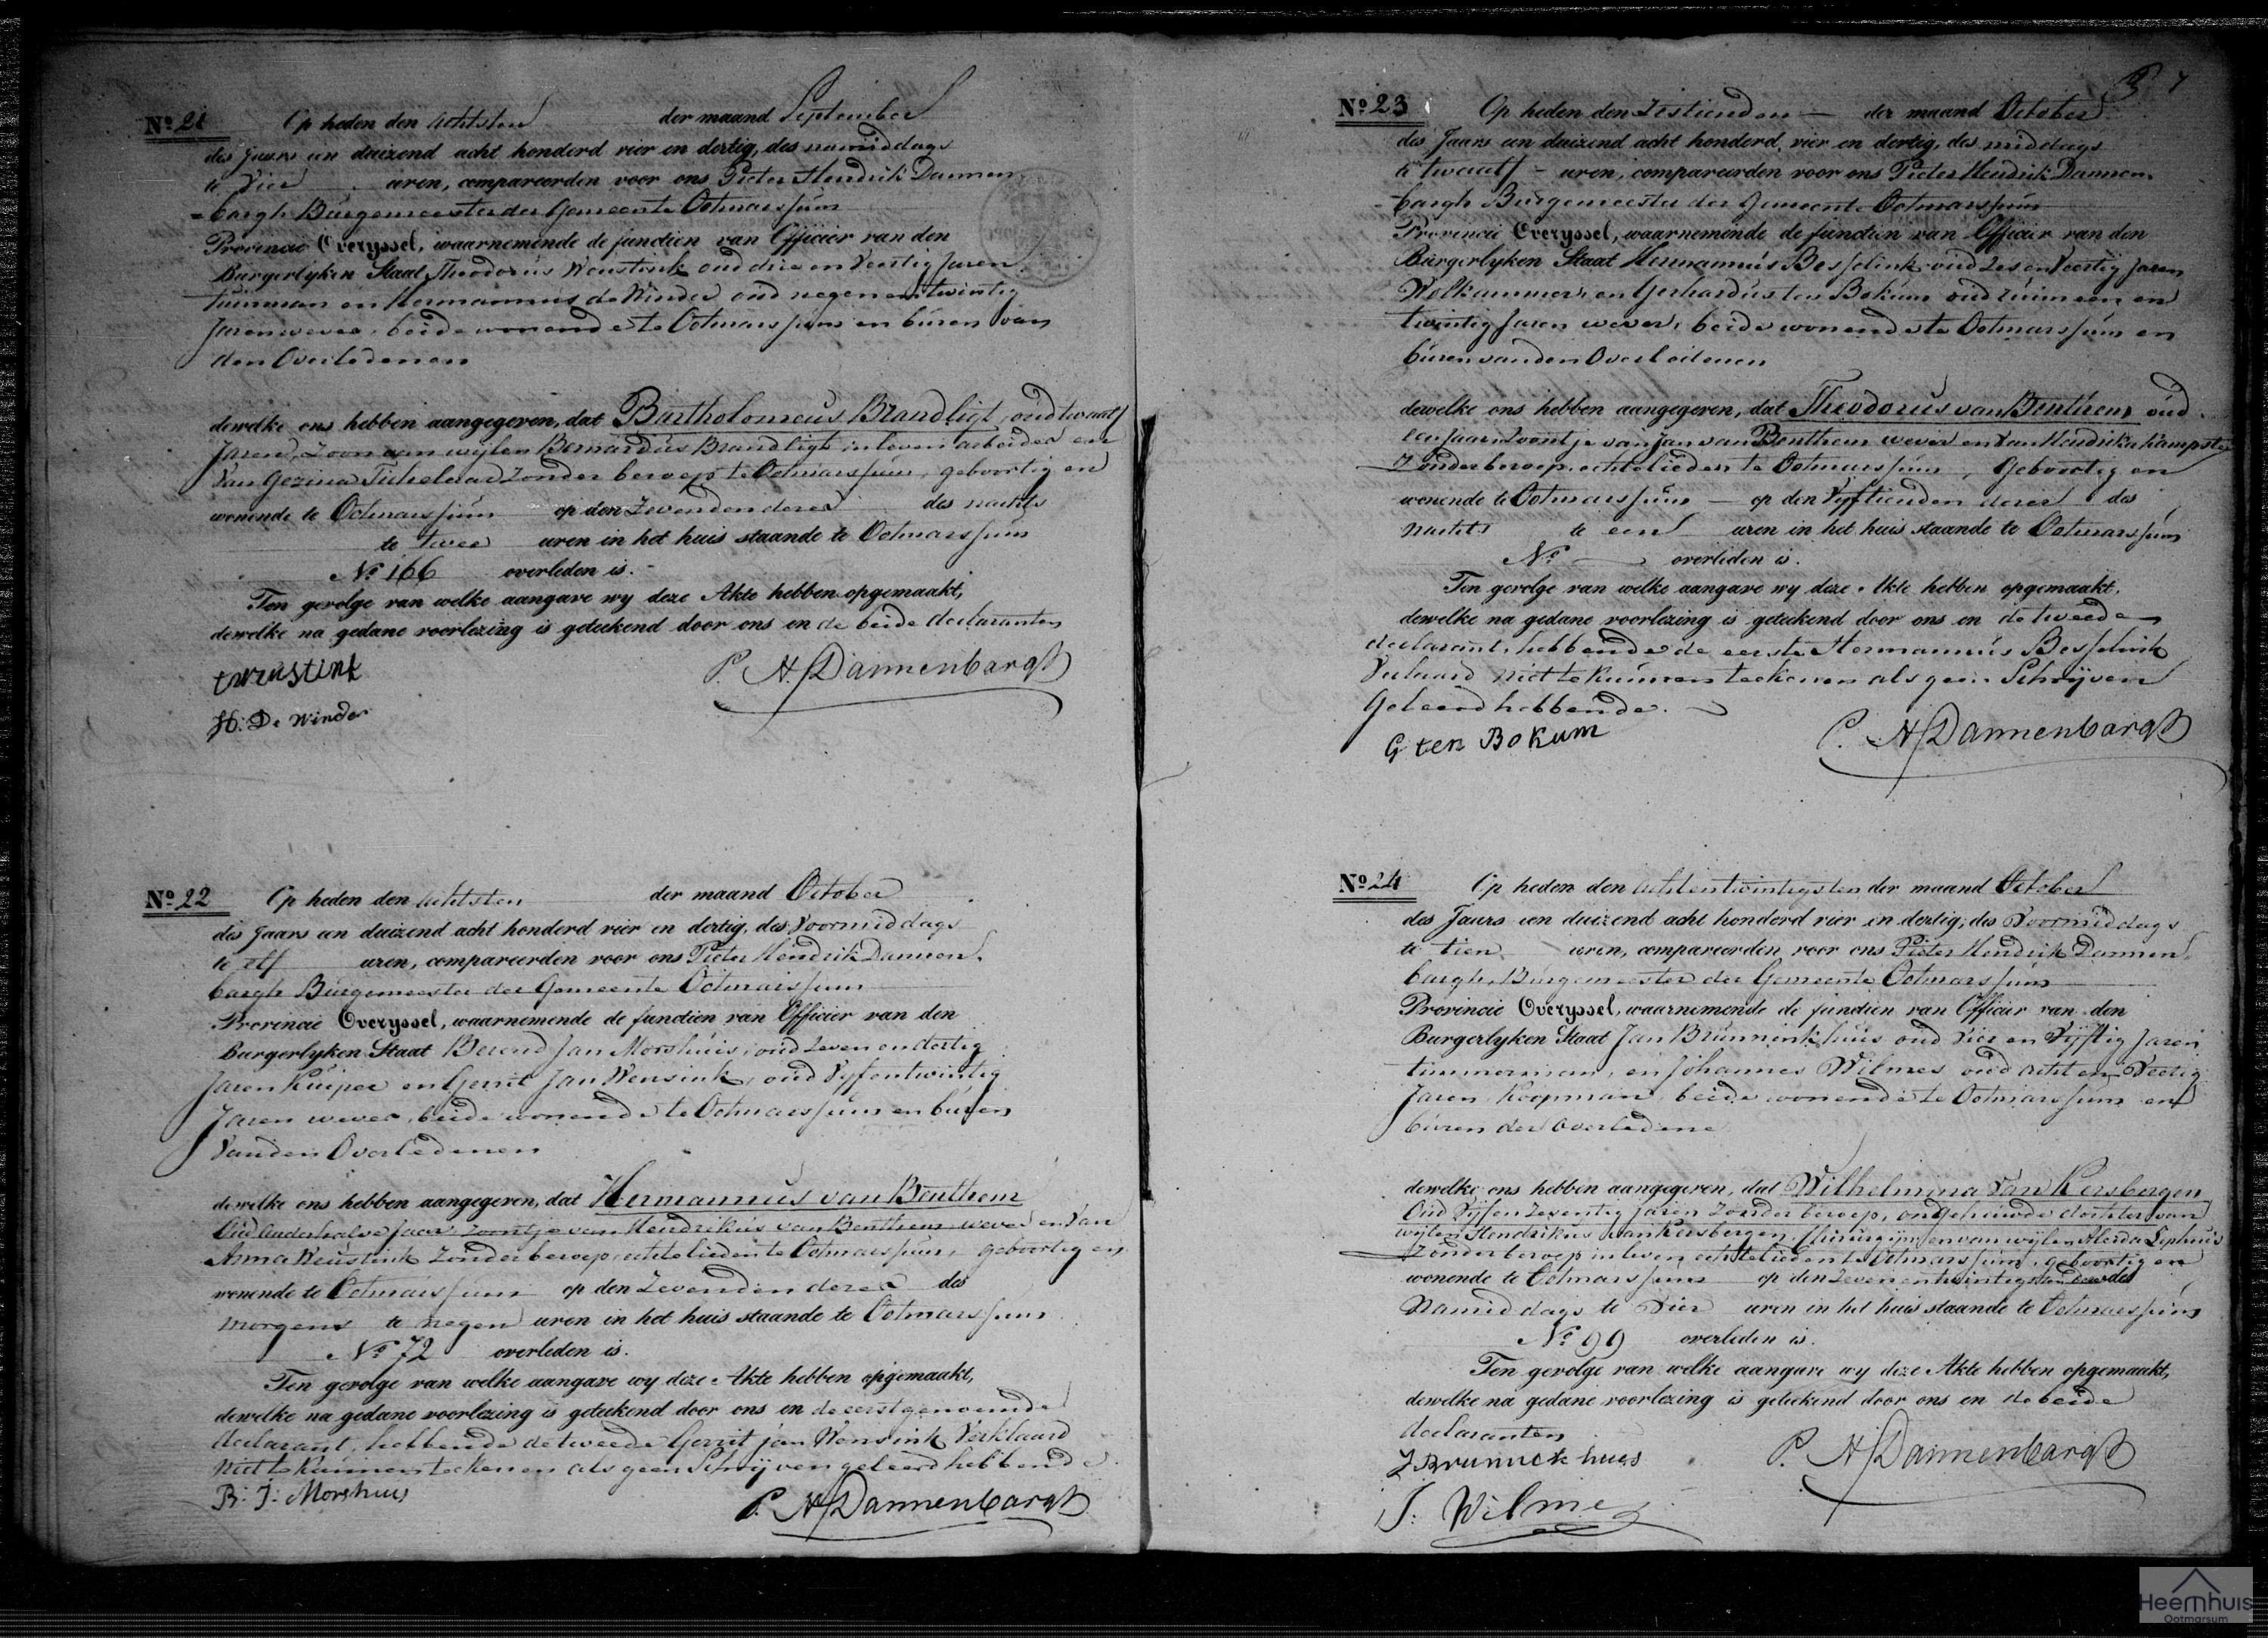 Nº 21 Op heden den achtsten der maand September
des Jaars een duizend acht honderd vier en dertig, des namiddags
te vier uren, compareerden voor ons Pieter Hendrik Dannen
bargh Burgemeester der Gemeente Ootmarssum
Provincie Overyssel, waarnemende de functien van Officier van den
Burgerlyken Staat Theodorus Weustink oud drie en Veertig Jaren
tuinman en Hermannus de Winder oud negen en twintig
Jaren wever, beide wonende te Ootmarssum en buren van
den Overledenen
dewelke ons hebben aangegeven, dat Bartholomeus Brandligt, oud twaalf
Jaren, Zoon van wylen Bernardus Brandligt in leven arbeider en
Van Gezina Tichelaar Zonder beroep te Ootmarssum, geboortig en
wonende te Ootmarssum op den Zevenden dezer des nachts
te twee uren in het huis staande te Ootmarssum
Nº 166 overleden is.
Ten gevolge van welke aangave wy deze Akte hebben opgemaakt,
dewelke na gedane voorlezing is geteekend door ons en de beide declaranten
P. H. Dannenbargh
H: De Winder
Nº 22 Op heden den achtsten der maand October
des Jaars een duizend acht honderd vier en dertig, des Voormiddags
te elf uren, compareerden voor ons Pieter Hendrik Dannen
bargh Burgemeester der Gemeente Ootmarssum
Provincie Overyssel, waarnemende de functien van Officier van den
Burgerlyken Staat Berend Jan Morshuis, oud Zeven en dertig
Jaren Kuiper en Gerrit Jan Wensink, oud Vyf en twintig
Jaren wever, beide wonende te Ootmarssum en buren
Van den Overledenen
dewelke ons hebben aangegeven, dat Hermannus van Benthem
Oud Anderhalve Jaar zoontje van Hendrikus van Benthem wever en Van
Anna Weustink Zonder beroep, echtelieden te Ootmarssum, geboortig en
wonende te Ootmarssum op den Zevenden dezer des
morgens te negen uren in het huis staande te Ootmarssum
Nº 72 overleden is.
Ten gevolge van welke aangave wy deze Akte hebben opgemaakt,
dewelke na gedane voorlezing is geteekend door ons en de eerstgenoemde
declarant, hebbende de tweede Gerrit Jan Wensink Verklaard
niet te kunnen teekenen als geen Schrijven geleerd hebbende
B: J: Morshuis P. H. Dannenbargh
7
Nº 23 Op heden den Zestienden der maand October
des Jaars een duizend acht honderd vier en dertig, des middags
te twaalf uren, compareerden voor ons Pieter Hendrik Dannen
bargh Burgemeester der Gemeente Ootmarssum
Provincie Overyssel, waarnemende de functien van Officier van den
Burgerlyken Staat Hermannus Besselink oud Zes en Veertig Jaren
Wolkammer, en Gerhardus ten Bokum oud ruim een en
twintig Jaren wever, beide wonende te Ootmarssum en
buren van den Overledenen
dewelke ons hebben aangegeven, dat Theodorus van Benthem oud
een Jaar Zoontje van Jan van Benthem wever en Van Hendrika Kampste
Zonder beroep echtelieden te Ootmarssum, Geboortig en
wonende te Ootmarssum op den Vyftienden dezer des
Nachts te een uren in het huis staande te Ootmarssum
Nº overleden is.
Ten gevolge van welke aangave wy deze Akte hebben opgemaakt,
dewelke na gedane voorlezing is geteekend door ons en de tweede
declarant, hebbende de eerste Hermannus Besselink
Verklaard niet te kunnen teekenen als geen Schrijven
Geleerd hebbende.
G ten Bokum P. H. Dannenbargh
Nº 24 Op heden den achtentwintigsten der maand October
des Jaars een duizend acht honderd vier en dertig, des Voormiddags
te tien uren, compareerden voor ons Pieter Hendrik Dannen
bargh, Burgemeester der Gemeente Ootmarssum
Provincie Overyssel, waarnemende de functien van Officier van den
Burgerlyken Staat Jan Brunninkhuis oud Vier en Vyftig Jaren
timmerman, en Johannes Wilmes oud acht en Veertig
Jaren Koopman, beide wonende te Ootmarssum en
buren der Overledene
dewelke ons hebben aangegeven, dat Wilhelmina Van Kersbergen
Oud Vyf en Zeventig Jaren Zonder beroep, ongehuwde dochter van
wylen Hendrikus van Kersbergen, Chirurgijn, en van wylen Alerda
Zonder beroep in leven echtelieden te Ootmarssum, geboortig en
wonende te Ootmarssum op den Zevenentwintigsten dezer des
Namiddags te Vier uren in het huis staande te Ootmarssum
Nº 99 overleden is.
Ten gevolge van welke aangave wy deze Akte hebben opgemaakt,
dewelke na gedane voorlezing is geteekend door ons en de beide
declaranten
P. H. Dannenbargh
J: Wilmes
Heemhuis
Ootmarsum